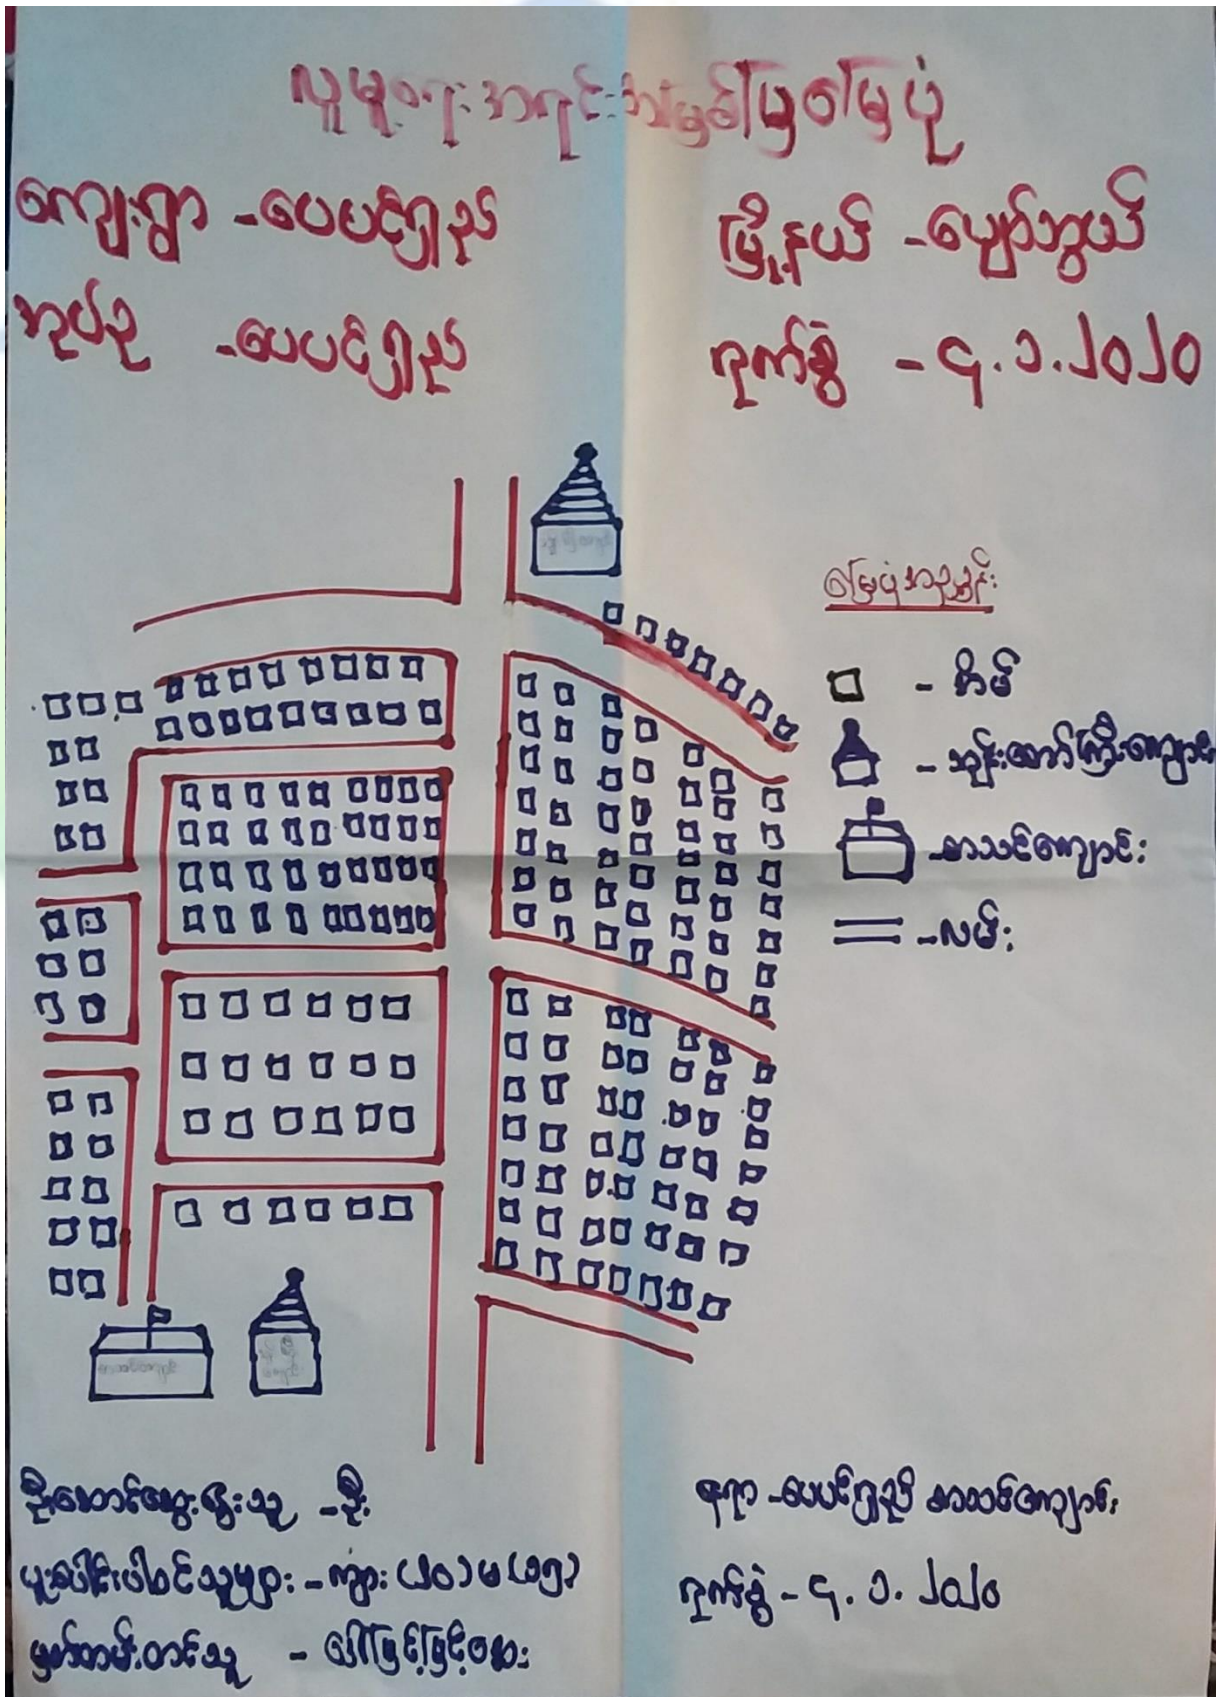 လူမှုရေးအရင်းအမြစ်ပြမြေပုံ
ကျေးရွာ - ပေပင်ရှည်
မြို့နယ် - ပျော်ဘွယ်
အုပ်စု - ပေပင်ရှည်
ရက်စွဲ - ၄.၁.၂၀၂၀
မြေပုံအညွှန်း
- အိမ်
- ဘုန်းတော်ကြီးကျောင်း
- စာသင်ကျောင်း
- လမ်း
ဦးဆောင်ဆွေးနွေးသူ - ဦး
ပူးပေါင်းပါဝင်သူများ - ကျား (၂၀) မ (၁၅)
မှတ်တမ်းတင်သူ - ဒေါ်မြင့်မြင့်ဆေး
နေရာ - ပေပင်ရှည် စာသင်ကျောင်း
ရက်စွဲ - ၄.၁.၂၀၂၀